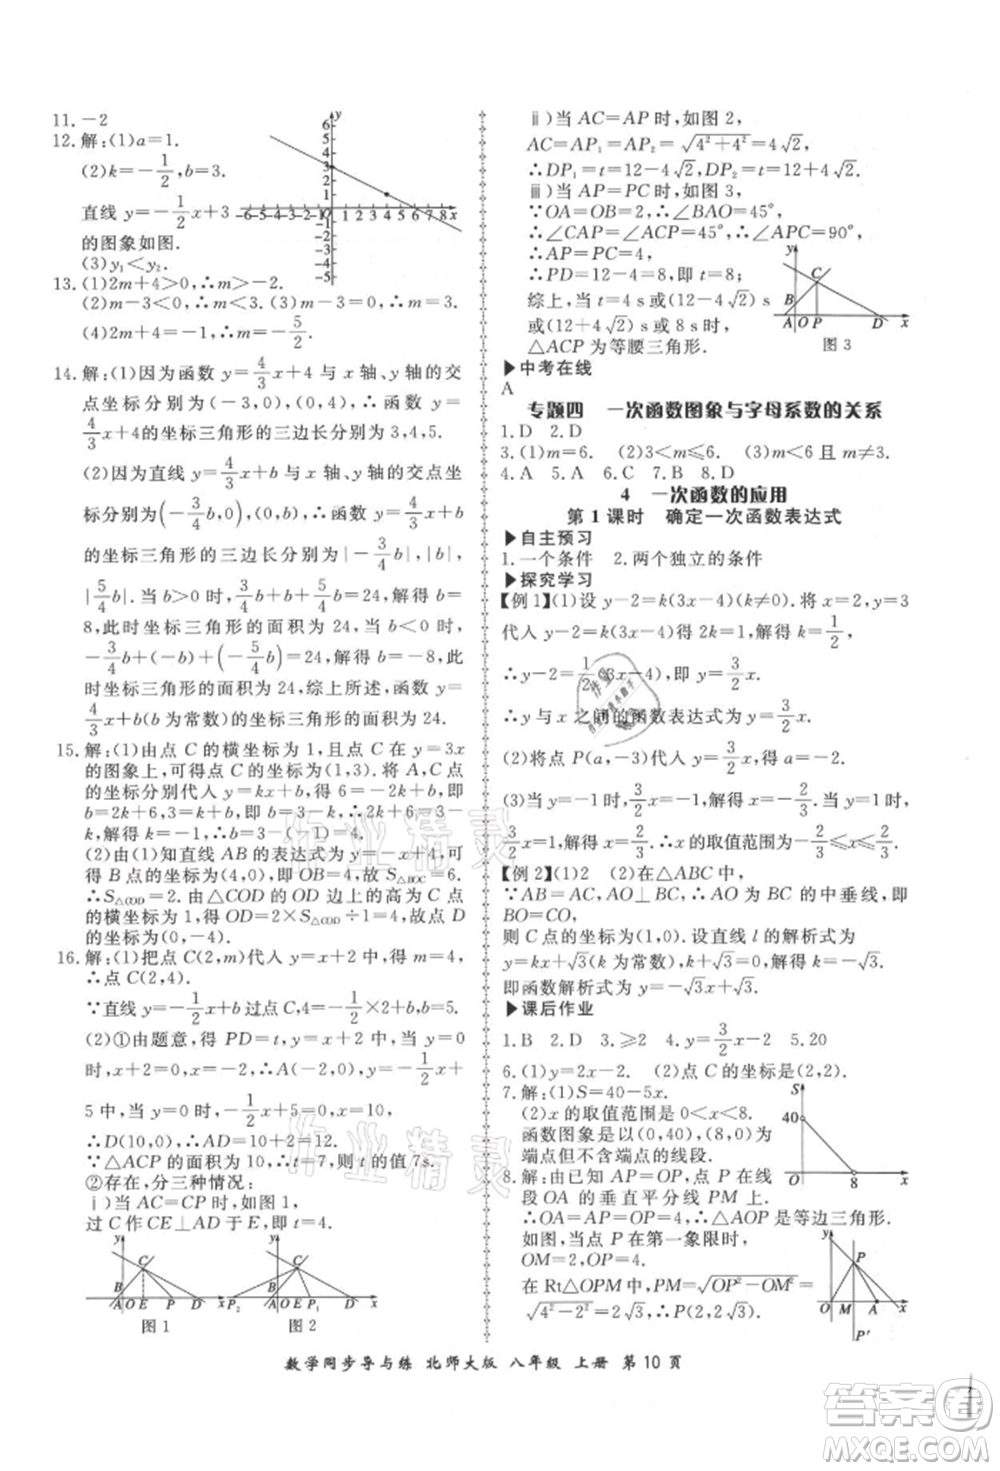 11.-2
12.解:(1)a=1.
(2)k=-1/2,b=3.
直线 y=-1/2x+3
的图象如图.
(3)y₁<y₂.
13.(1)2m+4>0,∴m>-2.
(2)m-3<0,∴m<3.(3)m=3.
(4)2m+4=-1,∴m=-5/2.
14.解:(1)因为函数 y=4/3x+4 与 x 轴、y 轴的交
点坐标分别为(-3,0),(0,4),∴函数 y=
4/3x+4的坐标三角形的三边长分别为3,4,5.
(2)因为直线 y=4/3x+b 与两坐标轴的交点坐
标分别为(-3/4b,0),(0,b),∴函数 y=4/3x+b
的坐标三角形的三边长分别为|-3/4b|,|b|,
|5/4b|.当b>0时,3/4b+5/4b+b=24,解得b=
8,此时坐标三角形的面积为 24,当 b<0 时,
-3/4b-5/4b-b=24,解得 b=-8,此
时坐标三角形的面积为24,综上所述,函数 y=
4/3x+b(b为常数)的坐标三角形的面积为24.
15.解:(1)由点 C 的横坐标为 1,且点 C 在 y=3x
的图象上,可得点 C 的坐标为(1,3).将 A,C 点
的坐标分别代入 y=kx+b,得 6=-2k+b,即
b=2k+6,3=k+b,即 b=3-k,∴2k+6=3-k,
∴k=-1,∴b=3-(-1)=4.
(2)由(1)知直线 AB 的表达式为 y=-x+4,可
得 B 点坐标为(4,0),即OB=4,故 S△BOC=6.
∴S△COD=2.由△COD 的 OD 边上的高为 C 点
的横坐标为1,得 OD=2×S△COD÷1=4,故点 D
的坐标为(0,-4).
16.解:(1)把点 C(2,m)代入 y=x+2 得 m=4,
∴点C(2,4).
∵直线 y=-1/2x+b 过点 C,4=-1/2×2+b,b=5.
(2)①由题意,得 PD=t,y=-1/2x+5中,当 y=0
5 中,当 y=0 时,-1/2x+5=0,x=10,
∴D(10,0),∴AD=10+2=12.
∵△ACP 的面积为 10,∴t=7,则 t 的值 7s.
②存在,分三种情况:
ⅰ)当 AC=CP 时,如图 1,
过 C 作 CE⊥AD 于 E,即 t=4.
图 1
图 2
ⅱ)当 AC=AP 时,如图 2,
AC=AP₁=AP₂=√(4²+4²)=4√2,
∴DP₁=t=12-4√2,DP₂=t=12+4√2.
ⅲ)当 AP=PC 时,如图 3,
∵OA=OB=2,∴∠BAO=45°,
∴∠CAP=∠ACP=45°,∴∠APC=90°,
∴AP=PC=4,
∴PD=12-4=8,即 t=8;
综上,当 t=4 s 或(12-4√2) s
或(12+4√2) s 或 8 s 时,
△ACP 为等腰三角形.
图 3
▶中考在线
A
专题四 一次函数图象与字母系数的关系
1.D 2.D
3.(1)m=6. (2)3<m≤6. (3)m<6 且m≠3.
4.A 5.A 6.C 7.B 8.D
4 一次函数的应用
第 1 课时 确定一次函数表达式
▶自主预习
1.一个条件 2.两个独立的条件
▶探究学习
【例 1】(1)设 y-2=k(3x-4)(k≠0),当 x=2,y=3
代人 y-2=k(3x-4)得 2k=1,解得 k=1/2,
∴y-2=1/2(3x-4),即 y=3/2x.
∴y 与 x 之间的函数表达式为 y=3/2x.
(2)将点 P(a,-3)代人 y=3/2x,解得 a=-2.
(3)当 y=-1时,-1=3/2x,解得 x=-2/3.当
y=1时,1=3/2x,x=2/3,∴x 的取值范围为-2/3≤x≤2/3.
【例 2】(1)2 (2)在△ABC 中,
∵AB=AC,AO⊥BC,∴AO 为 BC 的中垂线,即
BO=CO,
则 C 点坐标为(1,0).设直线 l 的解析式为
y=kx+√3(k为常数),则 k+√3=0,解得 k=-√3.
即函数解析式为 y=-√3x+√3.
▶课后作业
1.B 2.D 3.≥2 4.y=3/2x-2 5.20
6.(1)y=2x-2. (2)点 C 的坐标是(2,2).
7.解:(1)S=40-5x.
(2)x 的取值范围是 0<x<8.
函数图象是以(0,40),(8,0)为
端点但不含端点的线段.
8.解:由已知 AP=OA,点 P 在线
段 OA 的垂直平分线 PM 上.
∴OA=AP=OP,∴△AOP 是等边三角形.
如图,当点 P 在第一象限时,
OM=2,OP=4.
在 Rt△OPM 中,PM=√(OP²-OM²)=
√(4²-2²)=2√3,∴P(2,2√3).
数学同步导与练 北师大版 八年级 上册 第 10 页
作业精灵
作业精灵
答案圈
MXQE.COM